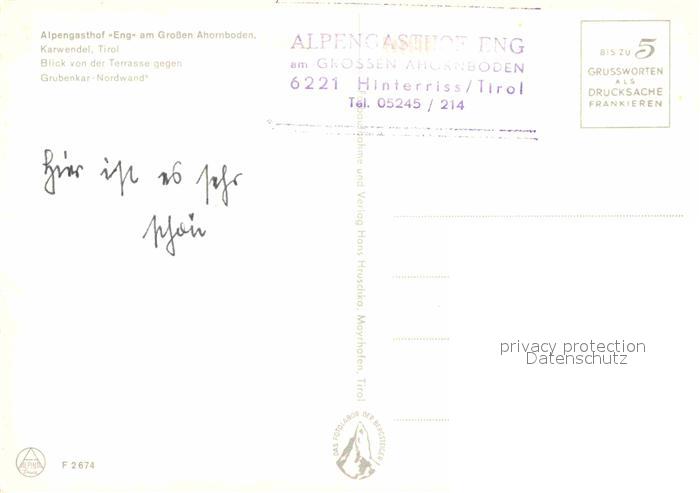 Alpengasthof »Eng« am Großen Ahornboden,
Karwendel, Tirol
Blick von der Terrasse gegen
Grubenkar-Nordwand
ALPENGASTHOF ENG
am GROSSEN AHORNBODEN
6221 Hinterriss/Tirol
Tel. 05245 / 214
BIS ZU 5
GRUSSWORTEN
ALS
DRUCKSACHE
FRANKIEREN
Hier ist es sehr
schön
und Verlag Hans Hruschka, Mayrhofen, Tirol
privacy protection
Datenschutz
DAS FOTOLABOR DER BERGSTEIGER
ALPINA
F 2674